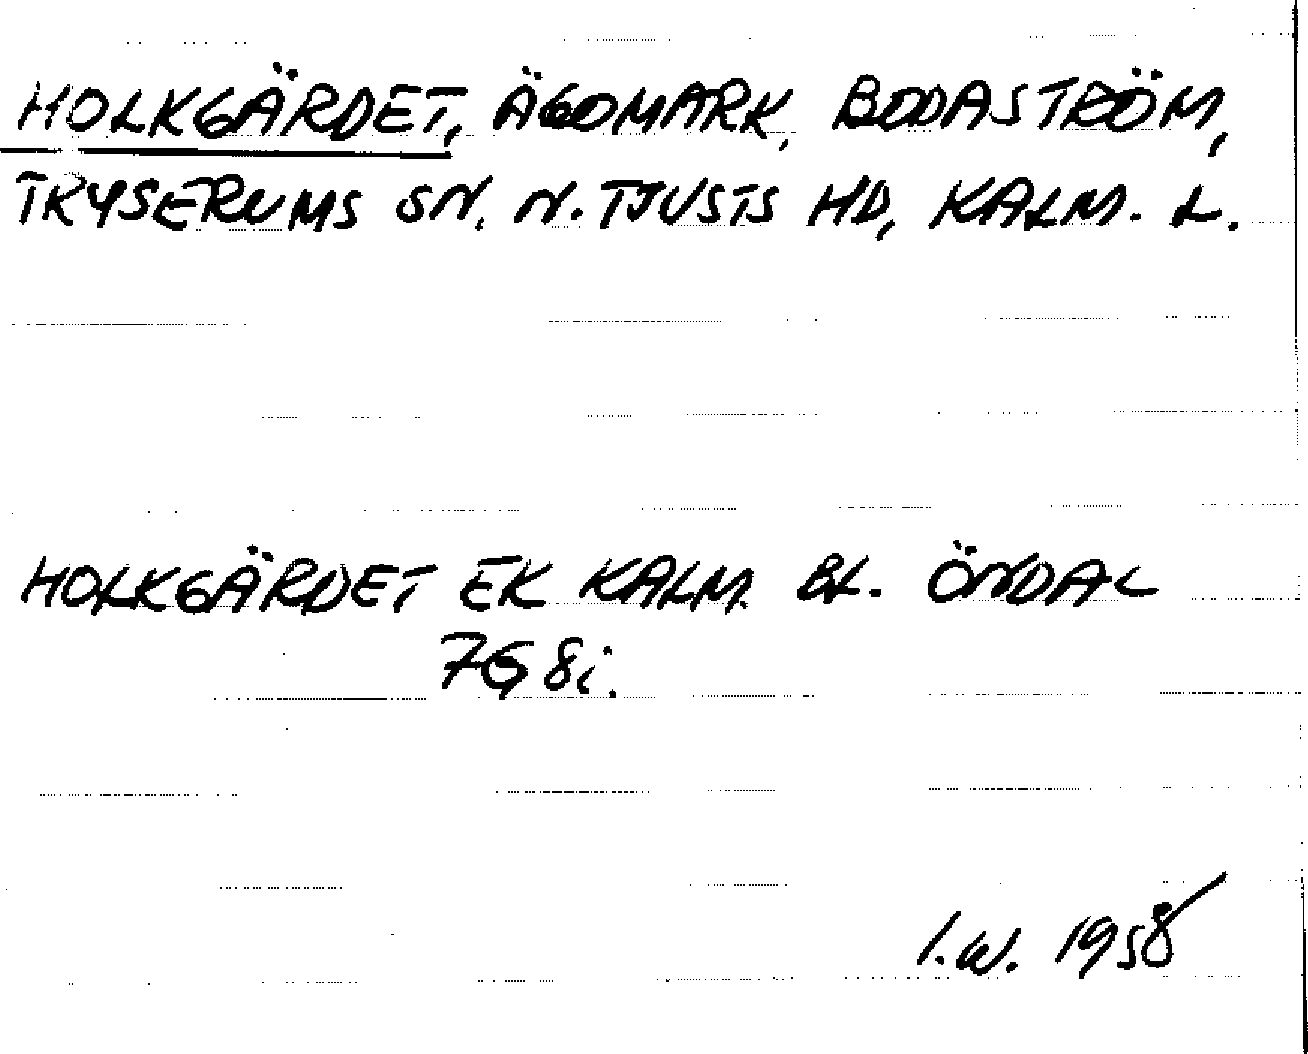 HOLKGÄRDET, ÄGOMARK, BODASTRÖM,
TRYSERUMS SN. N. TJUSTS HD, KALM. L.
HOLKGÄRDET EK KALM. BL. ÖNDAL
7G 8i.
I.W. 1958